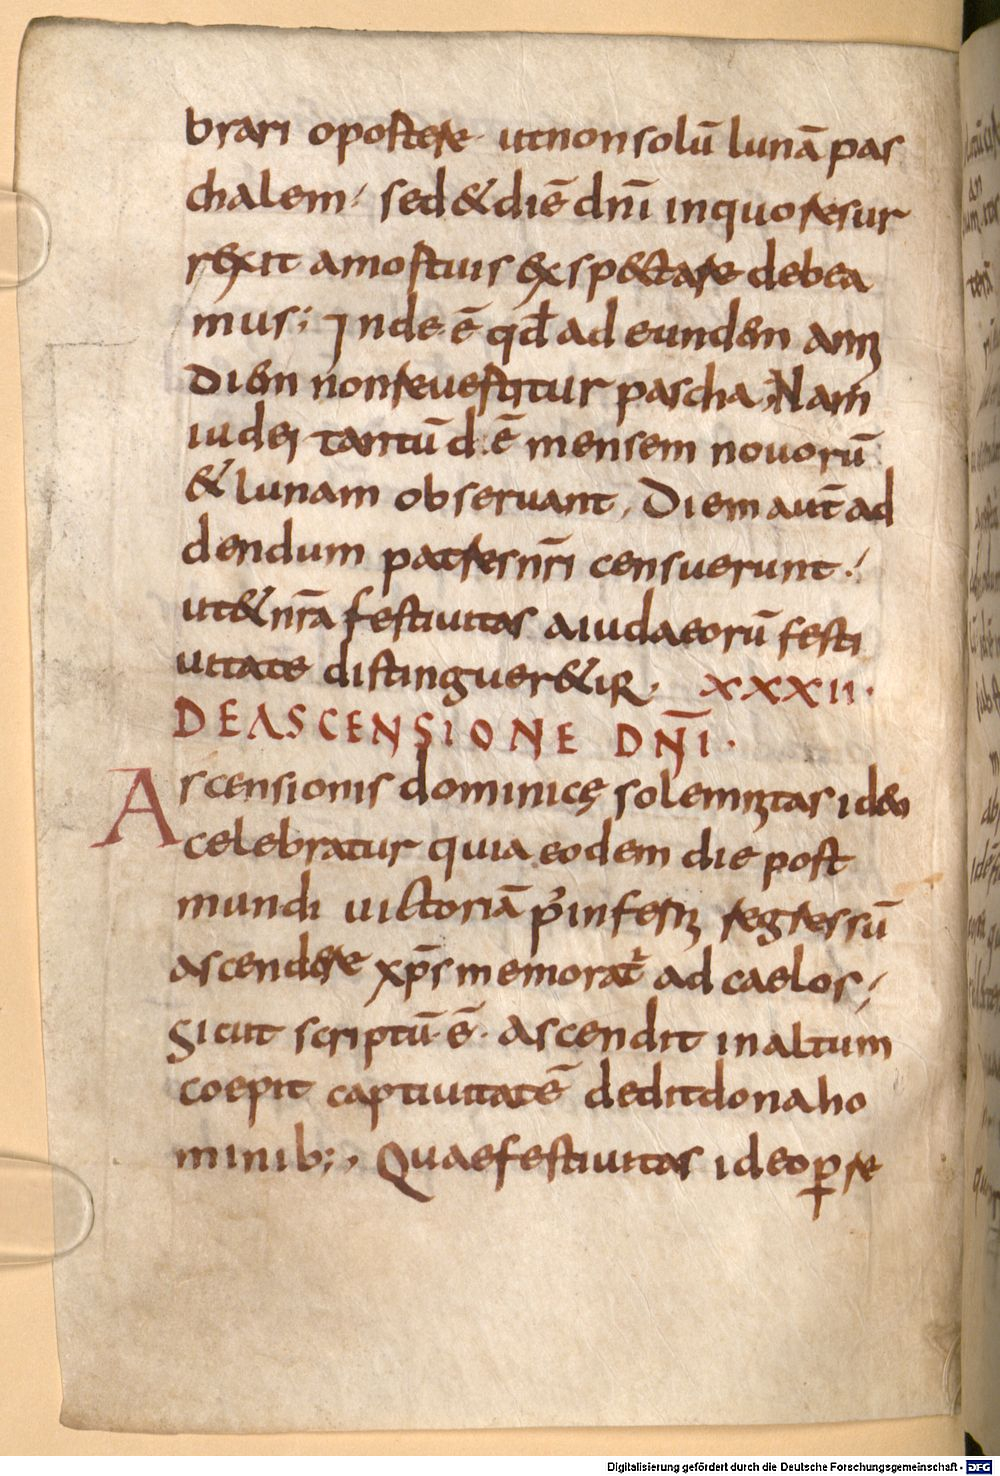 brari oportere· utnonsolū lunā pas
chalem/ sed&diē dnī inquo resur
rexit amortuis exsp&ctare debea
mus; Inde·ē· qđ ad eundem anni
Diem nonreuertitur pascha; Nam
iudei tantū d·ē mensem nouorū
& lunam obseruant, Diem aut̄ ad
dendum patres nr̄i censuerunt·/
ut&nr̄a festiuitas aiudaeorū festi
uitate distinguer&iR· XXXII·
DE ASCENSIONE DN̄I·
Ascensionis dominicę solemnitas ideo
celebratur quia eodem die post
mundi uictoriā p̓ inferni regressū
ascendere xp̄s memorat᷑ ad caelos·/
Sicut scriptū·ē· ascendit inaltum
coepit captiuitatē dedit dona ho
minib;, Quae festiuitas ideo ꝑ re
Digitalisierung gefördert durch die Deutsche Forschungsgemeinschaft - DFG